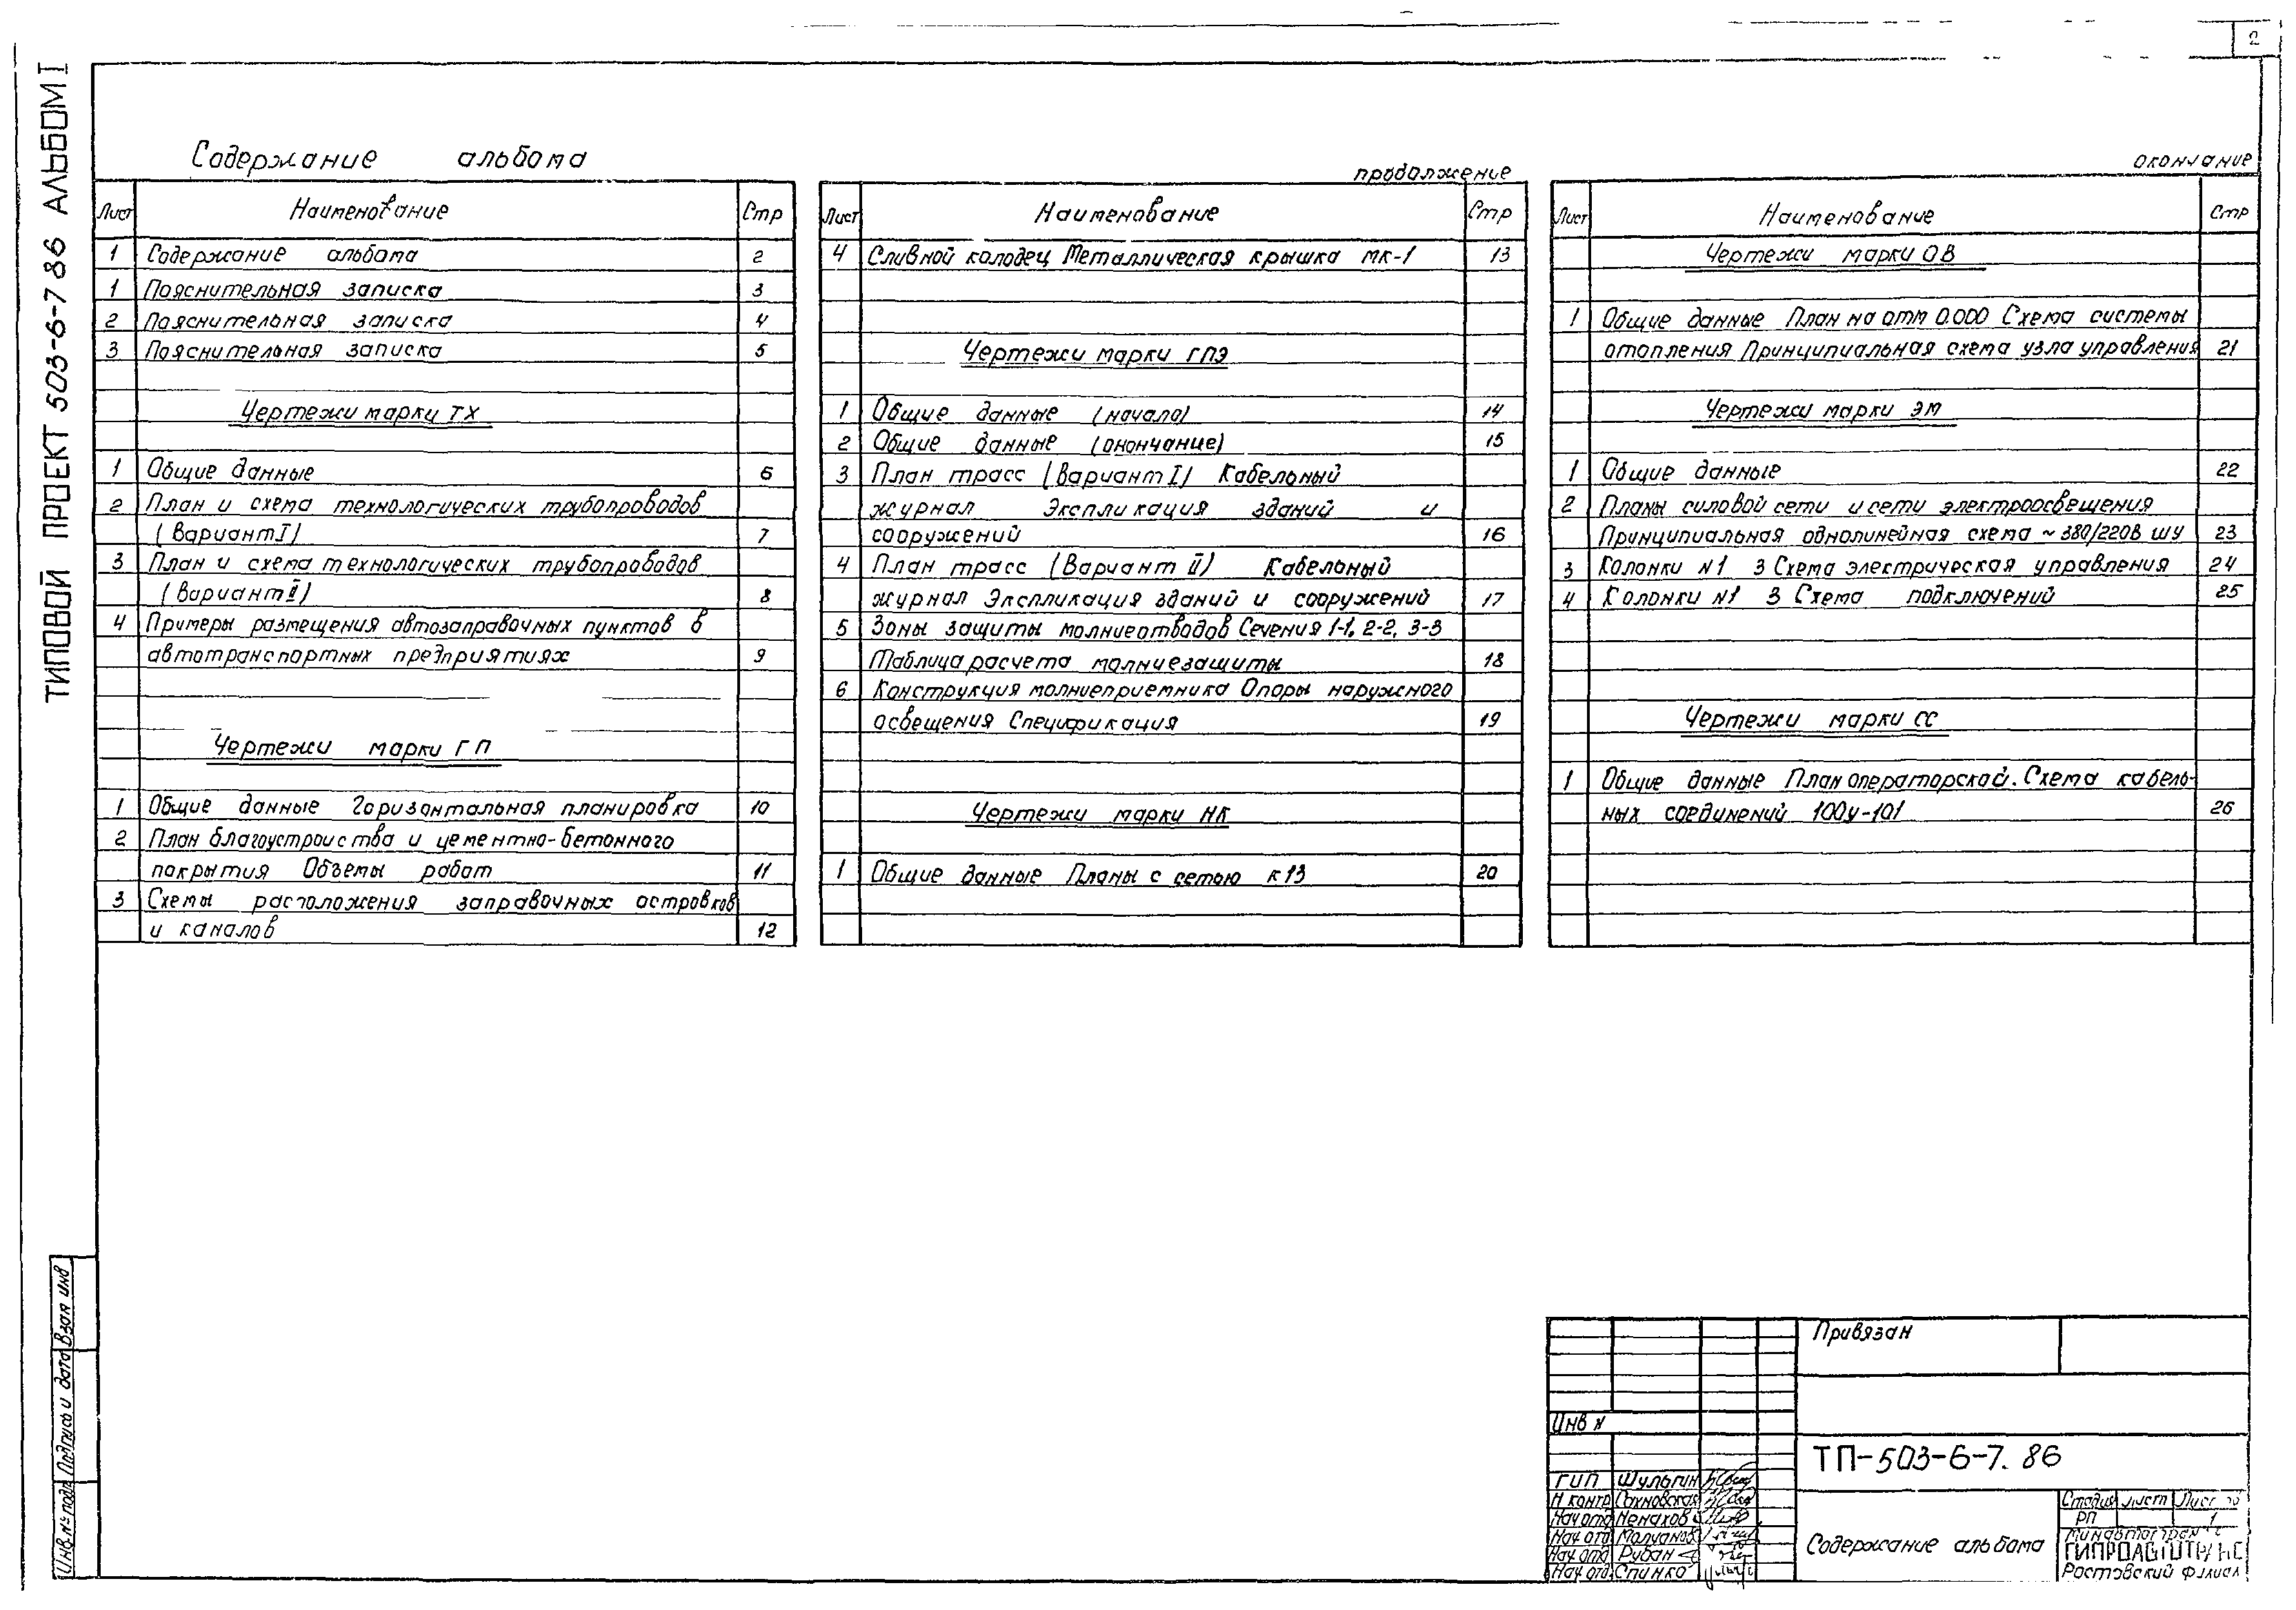 2
ТИПОВОЙ ПРОЕКТ 503-6-7 86 АЛЬБОМ I
Содержание альбома
Лист Наименование Стр
1 Содержание альбома 2
1 Пояснительная записка 3
2 Пояснительная записка 4
3 Пояснительная записка 5
Чертежи марки ТХ
1 Общие данные 6
2 План и схема технологических трубопроводов
(Вариант I) 7
3 План и схема технологических трубопроводов
(Вариант II) 8
4 Примеры размещения автозаправочных пунктов в
автотранспортных предприятиях 9
Чертежи марки ГП
1 Общие данные Горизонтальная планировка 10
2 План благоустроиства и цементно-бетонного
покрытия Объемы работ 11
3 Схемы расположения заправочных островков
и каналов 12
продолжение
Лист Наименование Стр
4 Сливной колодец Металлическая крышка МК-1 13
Чертежи марки ГПЭ
1 Общие данные (начало) 14
2 Общие данные (окончание) 15
3 План трасс (Вариант I) Кабельный
журнал Экспликация зданий и
сооружений 16
4 План трасс (Вариант II) Кабельный
журнал Экспликация зданий и сооружений 17
5 Зоны защиты молниеотводов Сечения 1-1, 2-2, 3-3
Таблица расчета молниезащиты 18
6 Конструкция молниеприемника Опоры наружного
освещения Спецификация 19
Чертежи марки НК
1 Общие данные Планы с сетью К13 20
окончание
Лист Наименование Стр
Чертежи марки ОВ
1 Общие данные План на отм 0.000 Схема системы
отопления Принципиальная схема узла управления 21
Чертежи марки ЭМ
1 Общие данные 22
2 Планы силовой сети и сети электроосвещения
Принципиальная однолинейная схема ~380/220В ШУ 23
3 Колонки N1 3 Схема электрическая управления 24
4 Колонки N1 3 Схема подключений 25
Чертежи марки СС
1 Общие данные План операторской. Схема кабель-
ных соединений 100У-101 26
Инв. № подл Подпись и дата Взам инв
Привязан
Инв N
ТП-503-6-7. 86
ГИП Шульгин
Н контр Сахновская
Нач отд Ненахов
Нач отд Молчанов
Нач отд Рубан
Нач отд Спинко
Содержание альбома
Стадия Лист
РП 1
Ростовский филиал